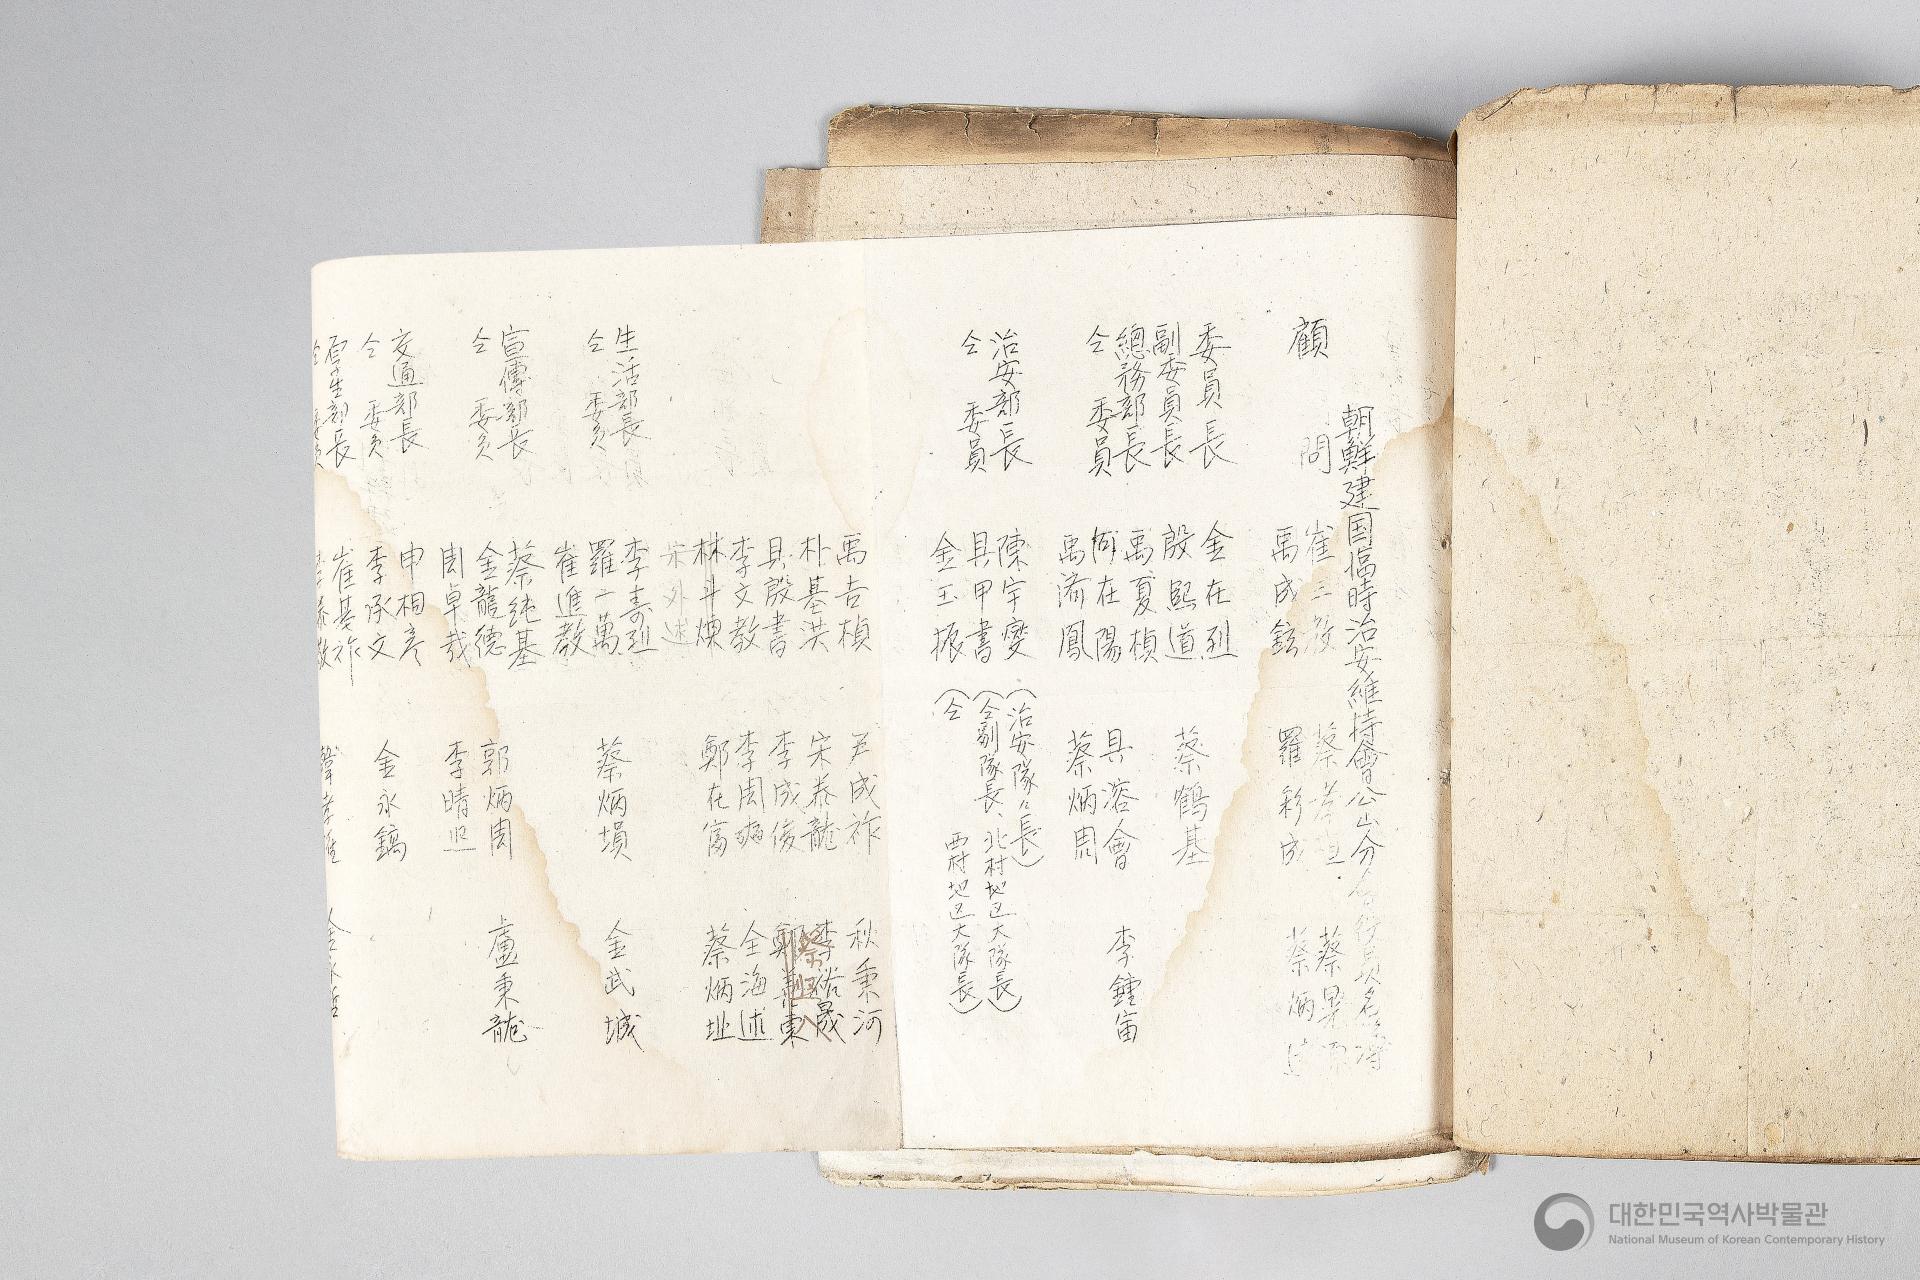 朝鮮建国臨時治安維持會公山分會行員名簿
顧問 崔三教 蔡 蔡
禹成鉉 羅彩成 蔡炳
委員長 金在烈
副委員長 殷熙道 蔡鶴基
總務部長 禹夏楨
仝 委員 何在陽 具溶會 李鍾甯
禹濟鳳 蔡炳周
治安部長 陳宇燮 (治安隊々長)
仝 委員 具甲書 (仝副隊長、北村地区大隊長)
金玉振 (仝 西村地区大隊長)
禹吉楨 尹成祚 秋秉河
朴基洪 宋泰龍 李裕晟
具殷書 李成俊 鄭 東
李文教 李周 全海述
林斗煉 鄭在富 蔡炳址
宋外述
生活部長 李壽烈
仝 委員 羅一萬 蔡炳塤 金武城
崔進教
宣傳部長 蔡純基
仝 委員 金龍德 郭炳周 盧秉龍
周卓哉 李晴
交通部長 申相彦
仝 委員 李承文 金永鎬
厚生部長 崔基祚
仝 委員 金永
대한민국역사박물관
National Museum of Korean Contemporary History